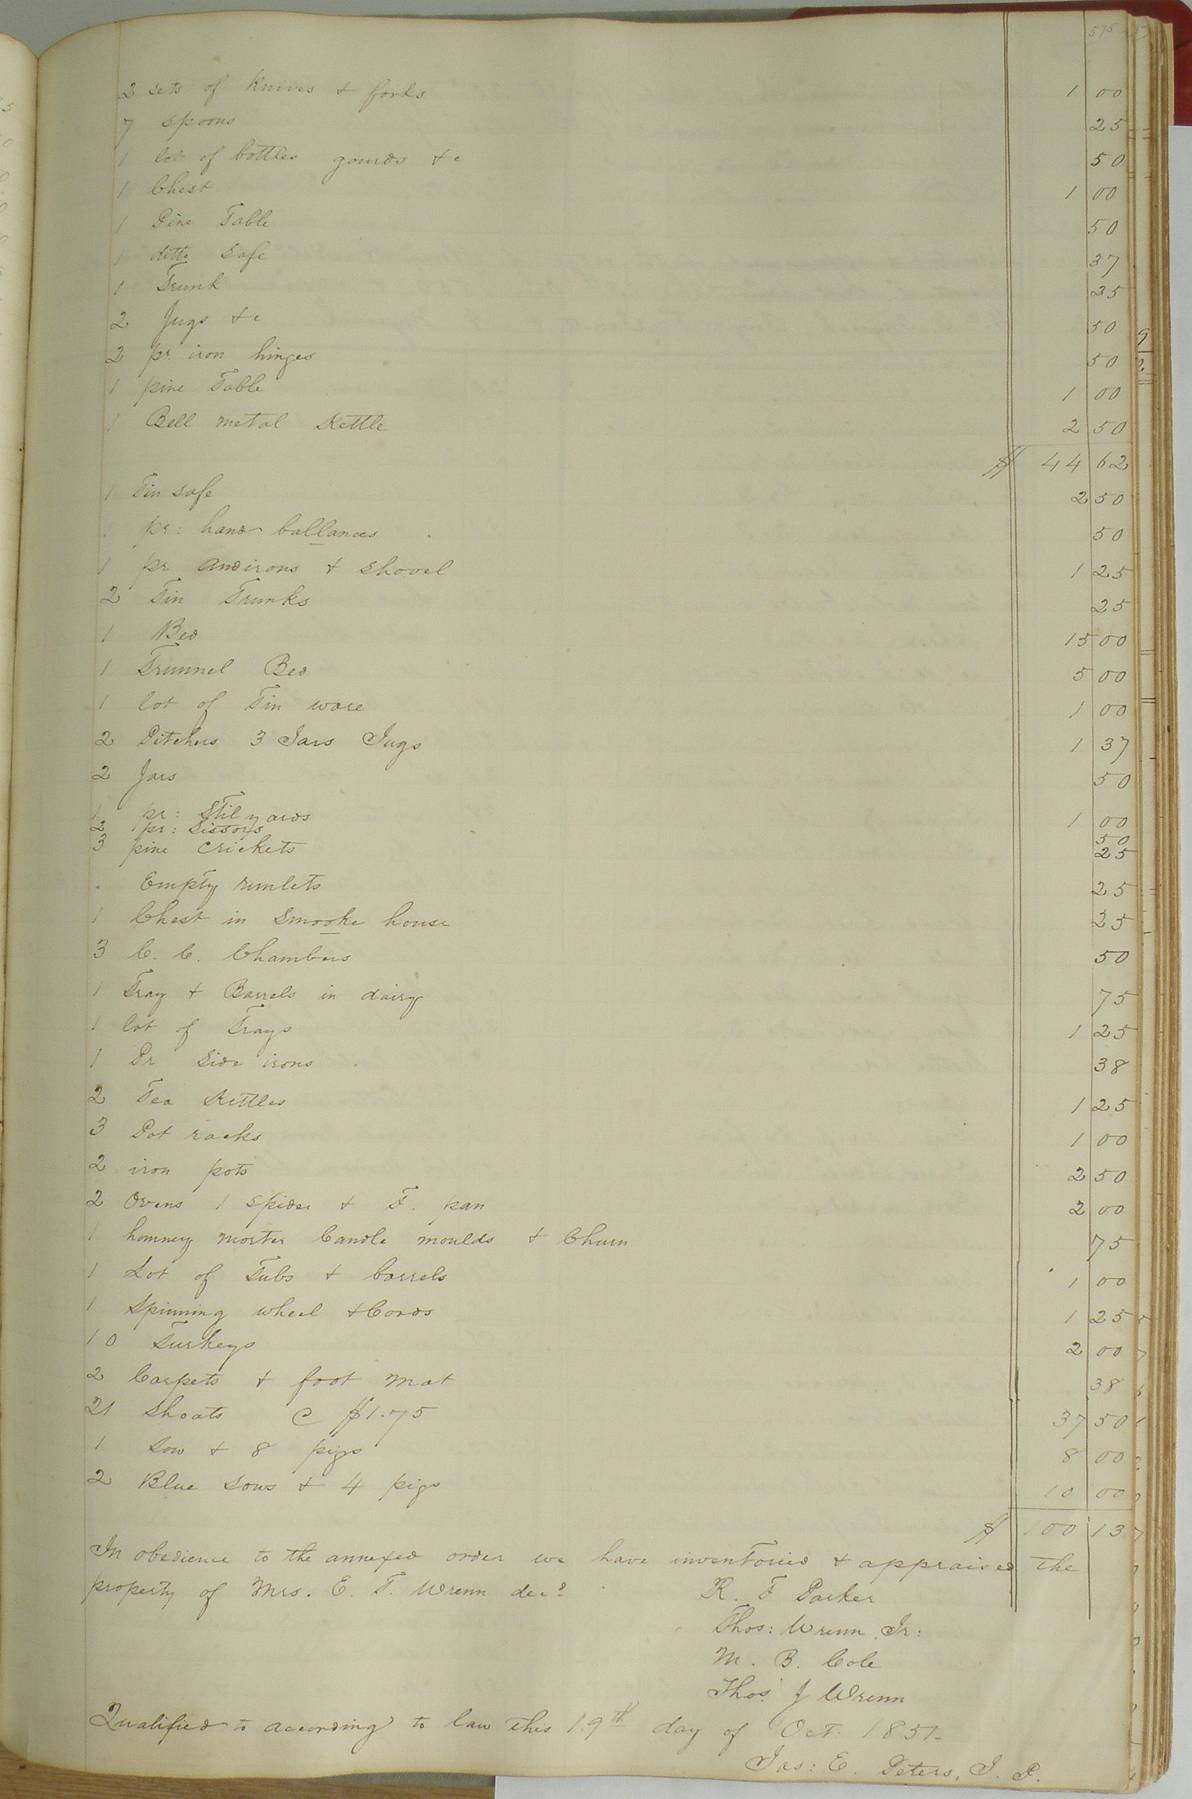 575
2 sets of Knives & forks 1 00
7 spoons 25
1 lot of bottles gourds &c 50
1 Chest 1 00
1 Pine Table 50
1 ditto Safe 37
1 Trunk 25
2 Jugs &c 50
2 pr. iron hinges 50
1 pine Table 1 00
1 Bell metal Kettle 2 50
$ 44 62
1 Tin safe 2 50
1 pr: hand ballances 50
1 pr andirons & shovel 1 25
2 Tin Trunks 25
1 Bed 15 00
1 Trunnel Bed 5 00
1 lot of Tin ware 1 00
2 Pitchers 3 Jars Jugs 1 37
2 Jars 50
1 pr: Stilyards 1 00
2 pr: Sissors 50
3 pine crickets 25
Empty rimlets 25
1 Chest in Smooke house 25
3 C. C. Chambers 50
1 Tray & Barrels in dairy 75
1 lot of Trays 1 25
1 Pr Side irons 38
2 Tea Kettles 1 25
3 Pot racks 1 00
2 iron pots 2 50
2 Ovens 1 Spider & F. pan 2 00
1 hommey morter Candle moulds & Churn 75
1 Lot of Tubs & barrels 1 00
1 Spinning wheel & Cords 1 25
10 Turkeys 2 00
2 Carpets & foot Mat 38
21 Shoats @ $1.75 37 50
1 Sow & 8 pigs 8 00
2 Blue Sows & 4 pigs 10 00
$ 100 13
In obedience to the annexed order we have inventoried & appraised the
property of Mrs. E. T. Wrenn decd.
R. F Parker
Thos: Wrenn Jr:
M. B. Cole
Thos. J Wrenn
Qualified to according to law this 19th day of Oct. 1851.
Jas: E. Peters, J. P.